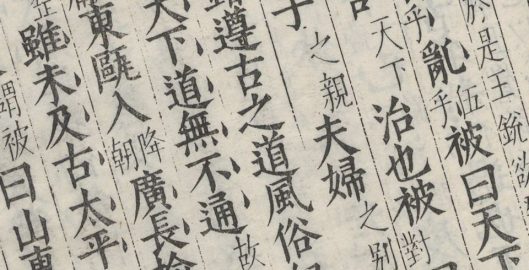 於是王銃欲
乎亂乎伍被曰天下
天下治也被對
子之親夫婦之別
遵古之道風俗
天下道無不通故
東甌入降朝廣長榆
雖未及古太平
謂被曰山東